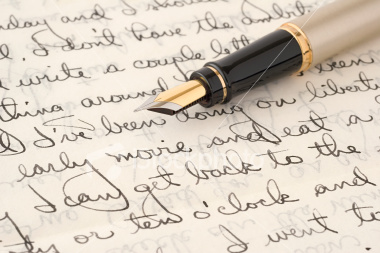 day and I should
I don't have the ambit
write a couple lett
thing around
I've been doing on libert
early movie and eat a
I can get back to the
or ten o'clock and
I went to